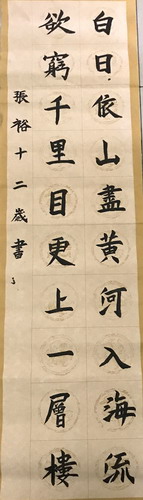 白日依山盡黄河入海流
欲窮千里目更上一層樓
張裕十二歲書